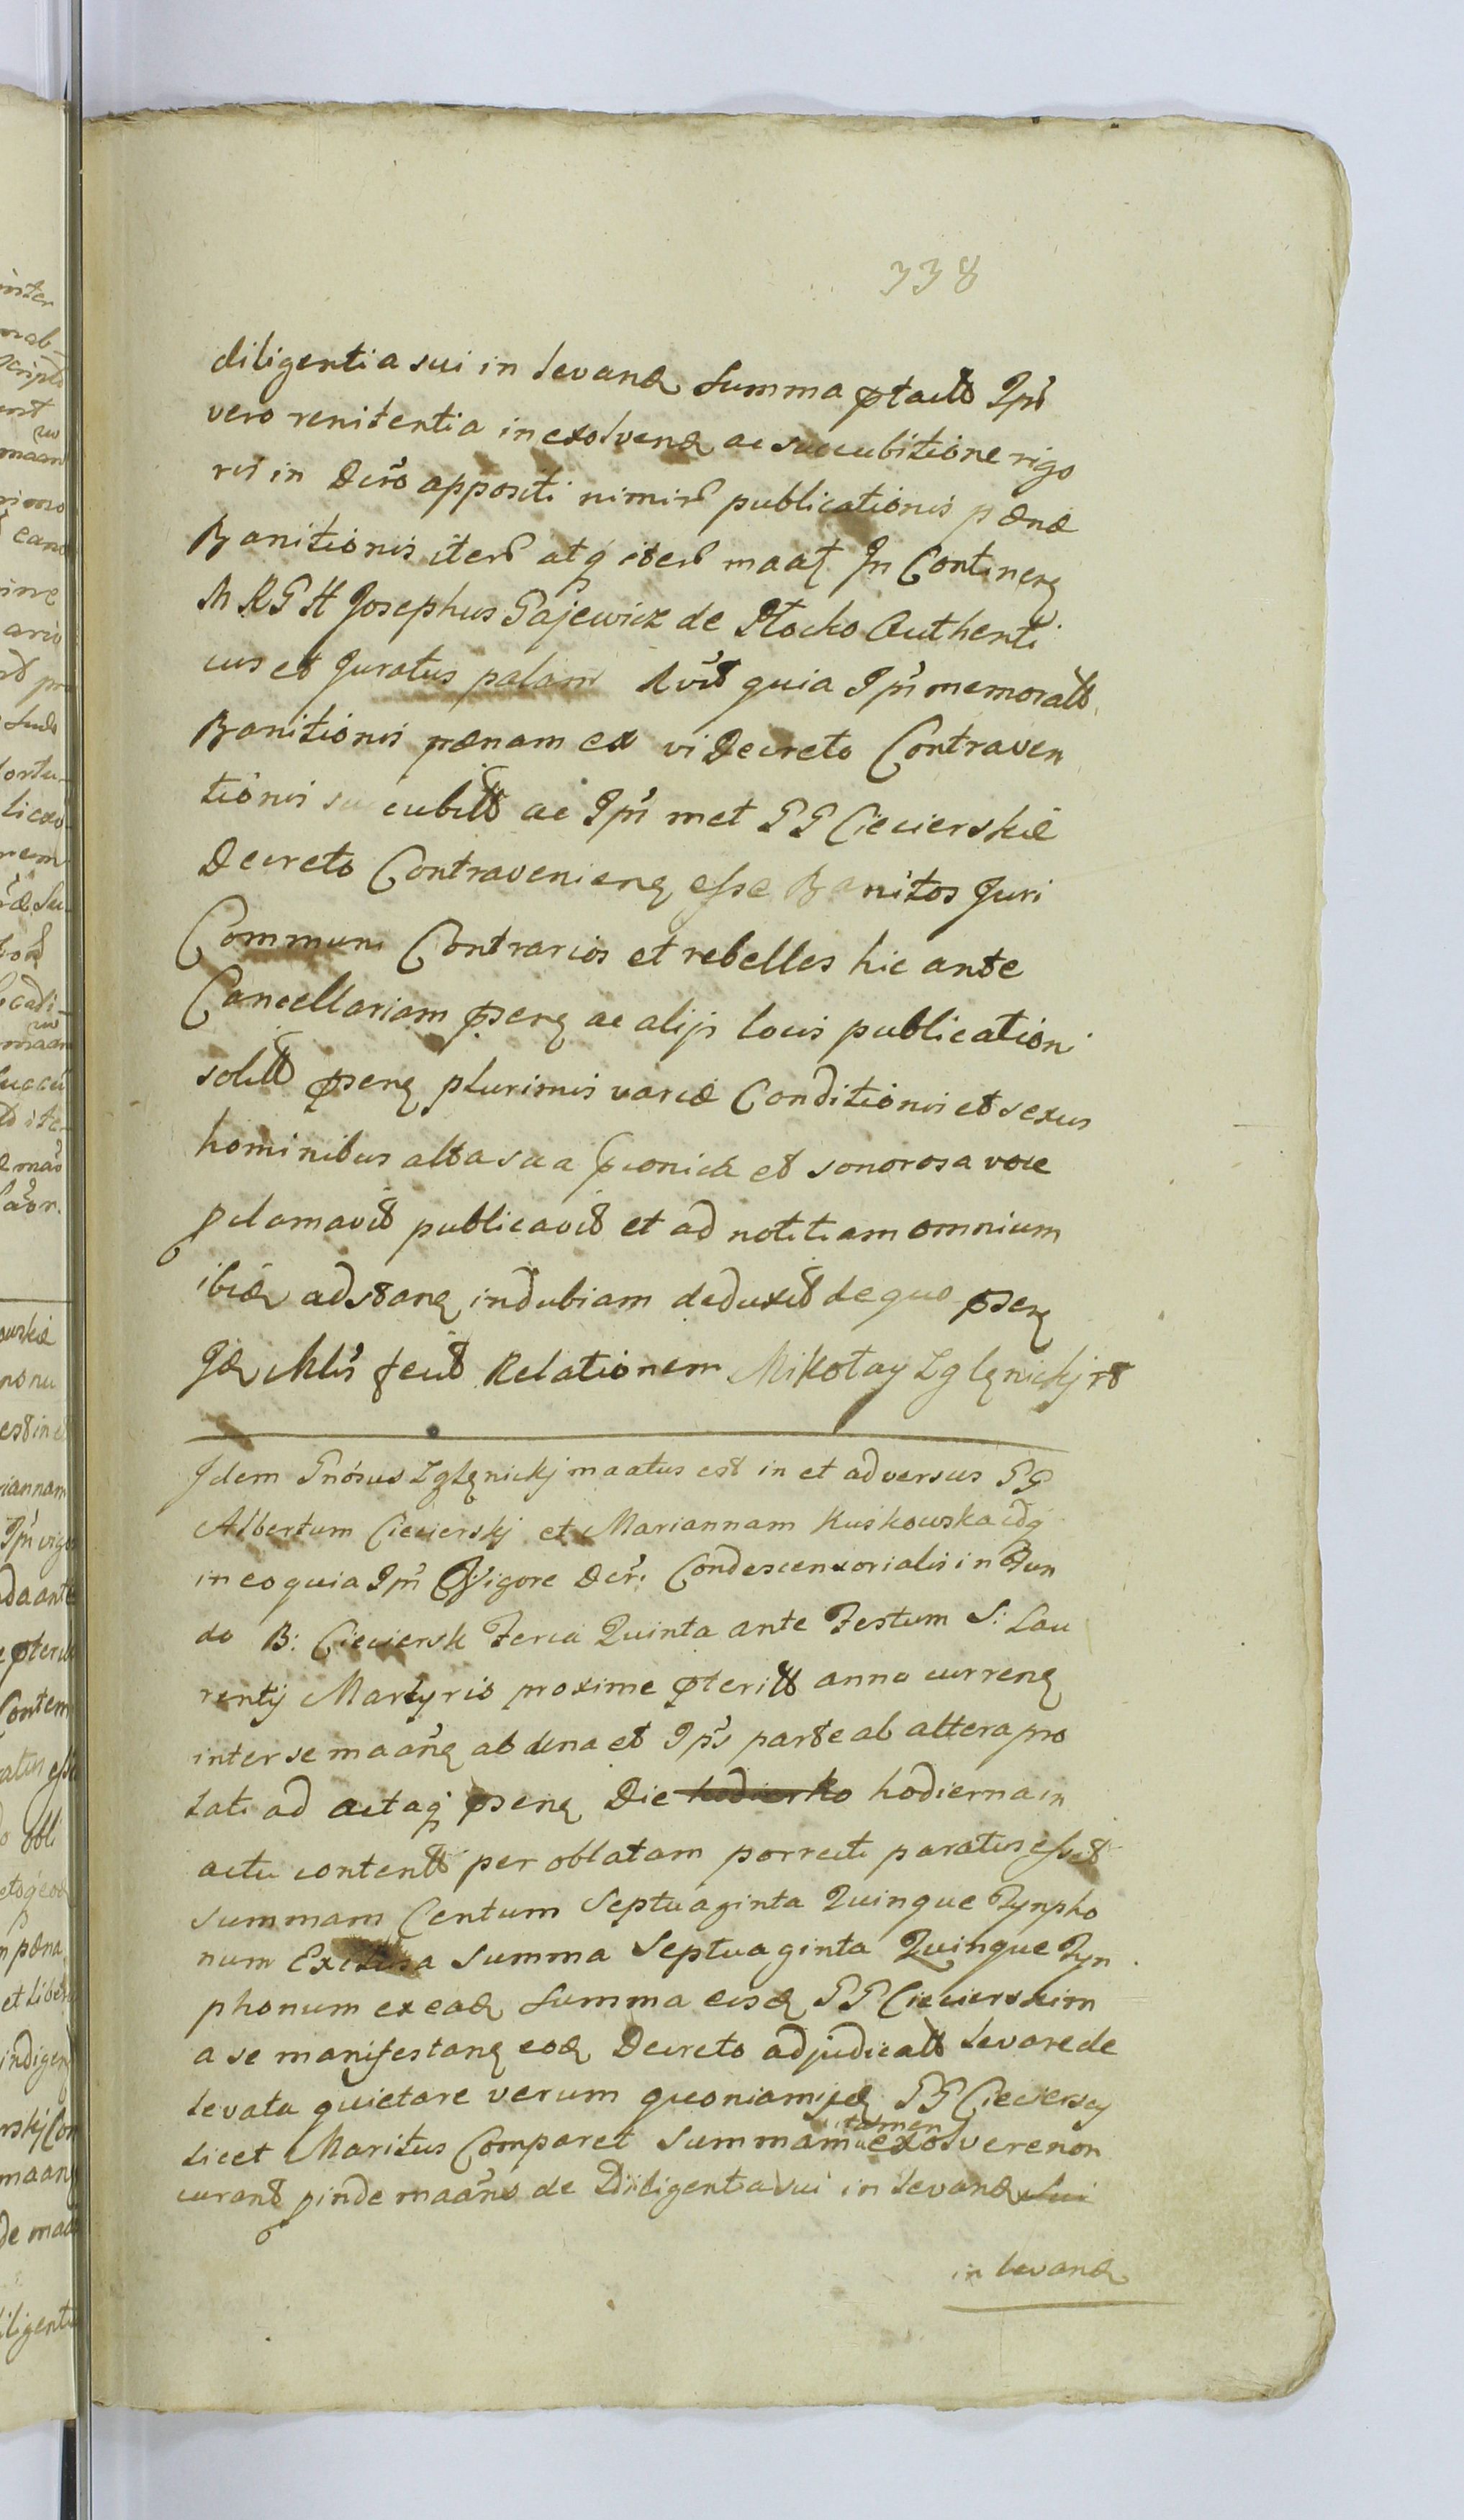 338
diligentia sui in levand Summa ptactt Ipor
vero renitentia in exolvend ac succubitione rigo
ris in Decro appositi nimir publicationis pænæ
Banitionis iter atq iter maat In Continen
M R G H Josephus Gajewicz de Płocko Authenti
cus et Juratus palam Rvit quia Ipri memoratt
Banitionis pænam ex vi Decreto Contraven
tionis succubitt ac Ipri met GG Ciecierskie
Decreto Contravenien esse Banitos Juri
Communi Contrarios et rebelles hic ante
Cancellariam psen ac alijs locis publicationi
solitt psen plurimis variæ Conditionis et sexus
hominibus alta sua pconica et sonorosa voce
pclamavit publicavit et ad notitiam omnium
ibid adstan indubiam deduxit de quo psen
Id Mlis fecit Relationem Mikołay Zglęnickj rt
Idem Gnosus Zglęnickj maatus est in et adversus GG
Albertum Ciecierskj et Mariannam Kuskowska cdg
in eo quia Ipri Vigore Decr: Condescensorialis in Fun
do B: Cieciersk Feria Quinta ante Festum S: Lau
rentij Martyris proxime pteritt anno curren
inter se maan ab una et Ipos parte ab altera pro
lati ad actaq psen Die hodierko hodierna in
actu contentt per oblatam porrecti paratus esset
summam Centum Septuaginta Quinque Tynpho
num Exclusa Summa Septuaginta Quinque Tyn
phonum ex ead Summa eisd GG Ciecierskim
a se manifestan eod Decreto adjudicatt levare de
levata quietare verum quoniam ijd GG Ciecierscy
licet Maritus Comparet Summam tamen exolvere non
curant pinde maans de Diligentia sui in levand sui
in levand